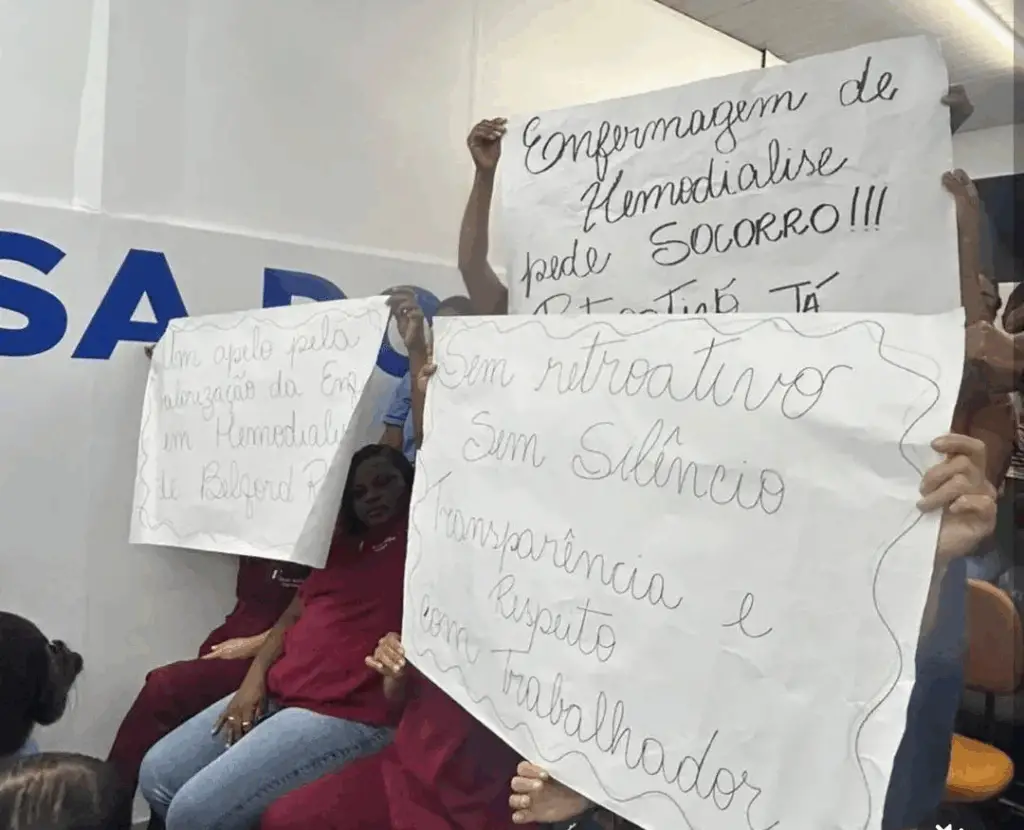 SA DO
Enfermagem de
Hemodialise
pede SOCORRO!!!
TÁ
Um apelo pela
valorização da Enf
em Hemodiali
de Belford R
Sem retroativo
Sem Silêncio
Transparência e
Respeito
com Trabalhador